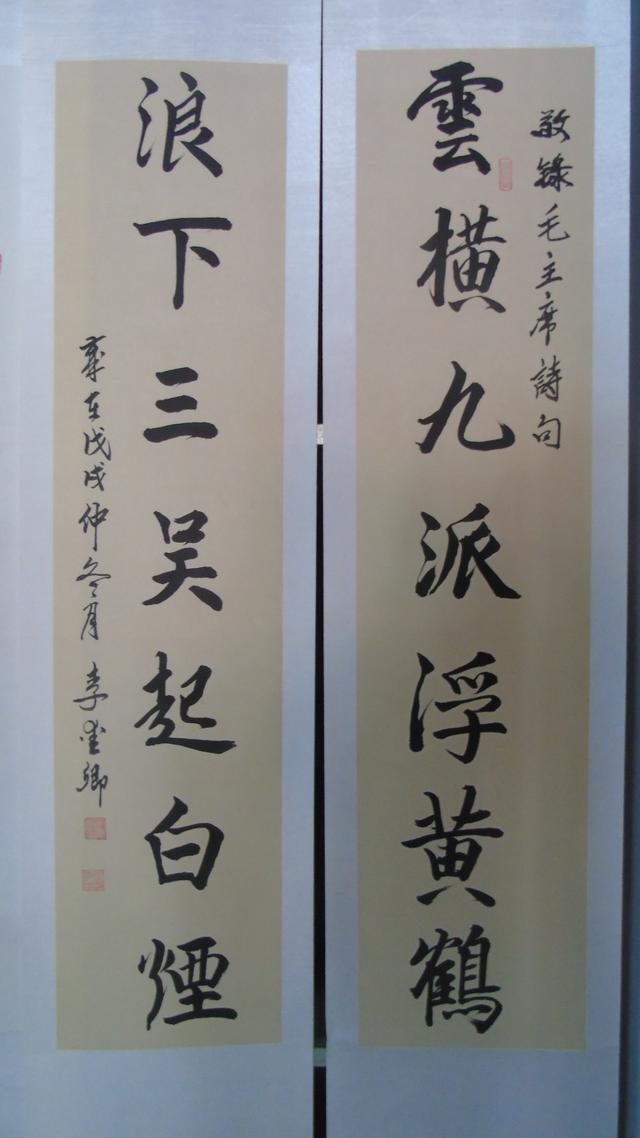 敬錄毛主席詩句
雲橫九派浮黄鶴
浪下三吴起白煙
戊戌仲冬月 李
卿